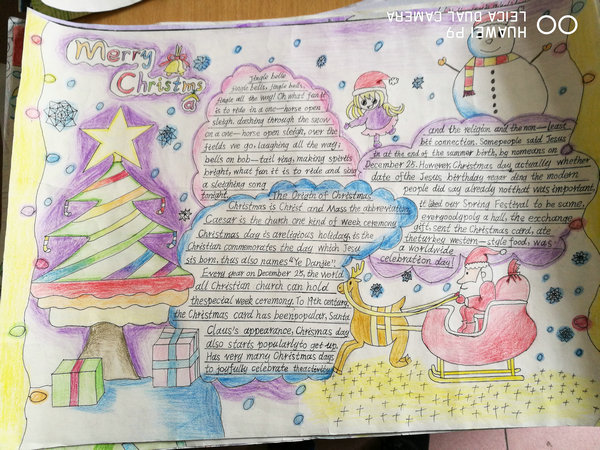 Merry
Christmas
Jingle bells
Jingle bells, Jingle bells,
Jingle all the way! Oh what fun it
is to ride in a one—horse open
sleigh. dashing through the snow
on a one—horse open sleigh, over the
fields we go, laughing all the way;
bells on bob—tail ring, making spirits
bright, what fun it is to ride and sing
a sleighing song
tonight.
The Origin of Christmas
Christmas is Christ and Mass the abbreviation
Caesar is the church one kind of week ceremony
Christmas day is areligious holiday, is the
Christian commemorates the day which Jesu
sis born, thus also names "Ye Danjie".
Every year on December 25, the world
all Christian church can hold
thespecial week ceremony. To 19th century,
the Christmas card has beenpopular, Santa
Claus's appearance, Chrismas day
also starts popularly to get up.
Has very many Christmas days
to joyfully celebrate theactivity
and the religion and the non—least
bit connection. Somepeople said Jesus
in at the end of the summer birth, by nomeans on
December 25. However, Christmas day actually whether
date of the Jesus birthday regar ding the modern
people did say already notthat was important,
it liked our Spring Festival to be same,
everygoodgoolg a hall, the exchange
gift, send the Christmas card, ate
theturkey western—style food, was
a worldwide
celebration day!
HUAWEI P9
LEICA DUAL CAMERA